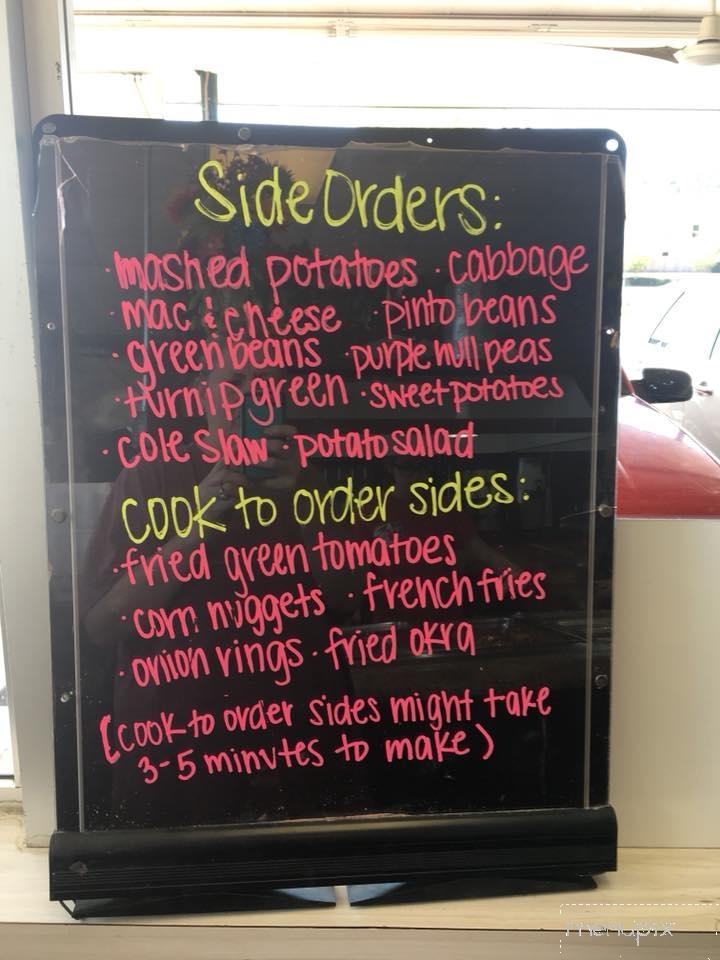 Side Orders:
· mashed potatoes · cabbage
· mac & cheese · pinto beans
· green beans · purple hull peas
· turnip green · sweet potatoes
· cole slaw · potato salad
cook to order sides:
· fried green tomatoes
· corn nuggets · french fries
· onion rings · fried okra
(cook to order sides might take
3-5 minutes to make)
menupix